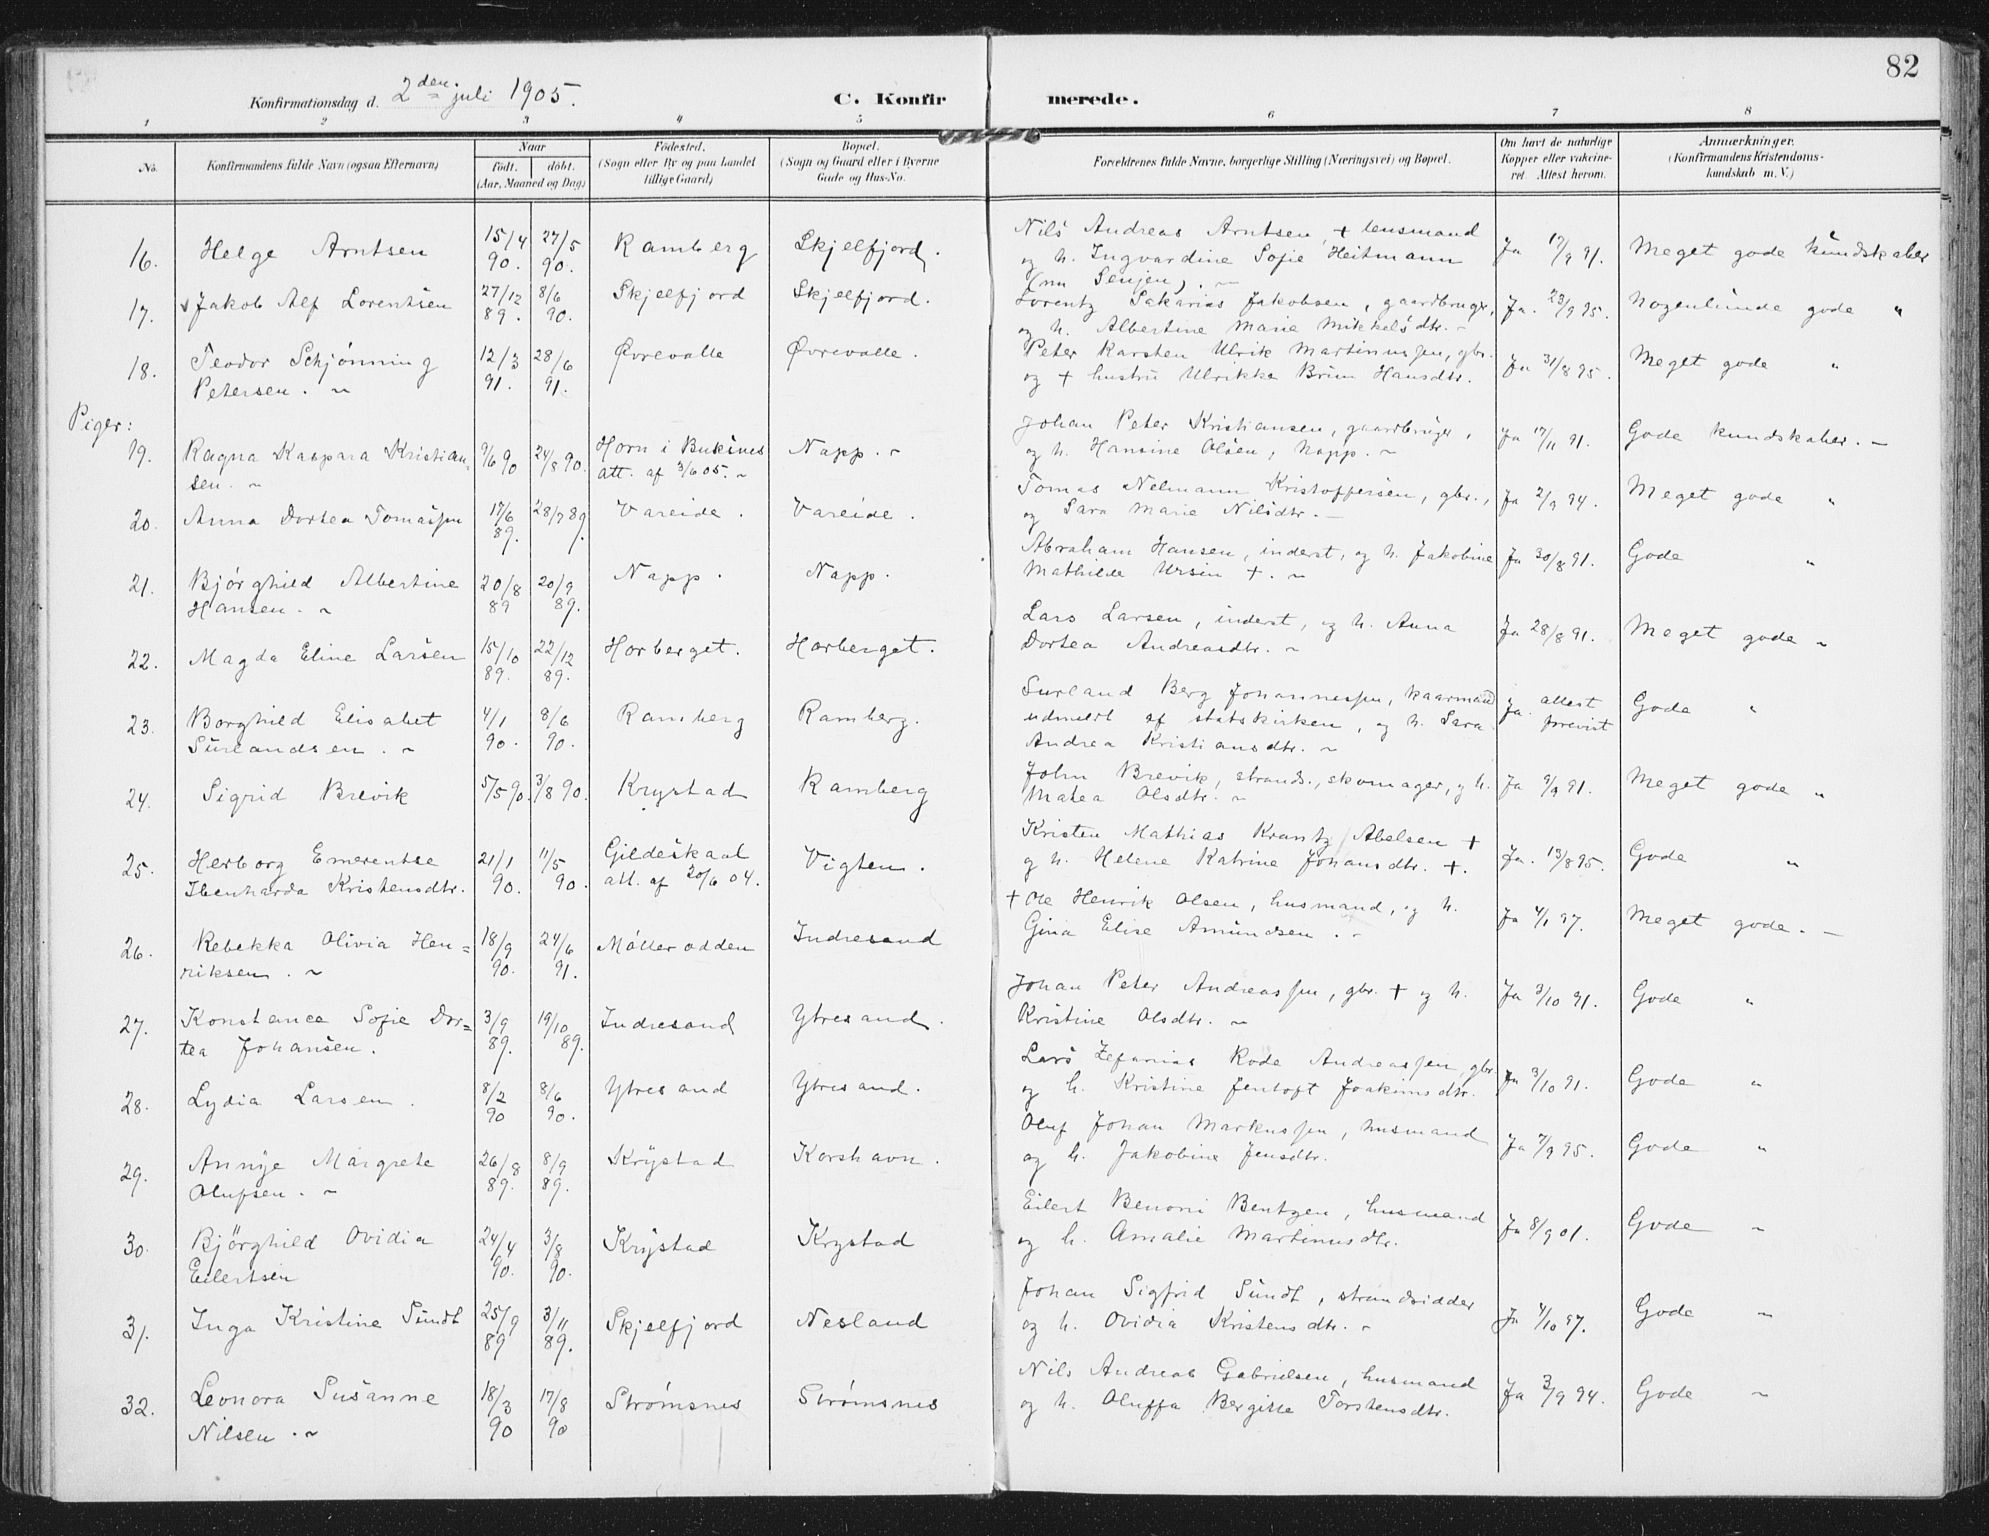 82
Konfirmationsdag d. 2den juli 1905.
C. Konfirmerede.
1 2 3 4 5 6 7 8
No.
Konfirmandens fulde Navn (ogsaa Efternavn)
Naar
født. døbt.
(Aar, Maaned og Dag)
Fødested.
(Sogn eller By og paa Landet
tillige Gaard)
Bopæl.
(Sogn og Gaard eller i Byerne
Gade og Hus-No.
Forældrenes fulde Navne, borgerlige Stilling (Næringsvei) og Bopæl.
Om havt de naturlige
Kopper eller vaccine-
ret Attest herom.
Anmærkninger.
(Konfirmandens Kristendoms-
kundskab m. V.)
16. Helge Arntsen 15/4 90. 27/5 90. Ramberg Skjelfjord. Nils Andreas Arntsen, + lensmand
og h. Ingvardine Sofie Heitmann
(nu Senjen). Ja 17/9 91. Meget gode kundskaber
17. Jakob Alf Lorentsen 27/12 89. 8/6 90. Skjelfjord Skjelfjord. Lorentz Sakarias Jakobsen, gaardbruger,
og h. Albertine Marie Mikkelsdtr. Ja. 23/9 95. Nogenlunde gode "
18. Teodor Schjønning
Petersen. 12/3 91. 28/6 91. Øvrevalle Øvrevalle. Peter Karsten Ulrik Martinussen, gbr.
og + hustru Ulrikke Brun Hansdtr. Ja 31/8 95. Meget gode "
Piger:
19. Ragna Kaspara Kristian-
sen. 9/6 90 24/8 90. Horn i Buksnes
att. af 3/6 05. Napp. Johan Peter Kristiansen, gaardbruger,
og h. Hansine Olsen, Napp. Ja 17/11 91. Gode kundskaber.
20. Anna Dortea Tomassen 17/6 89. 28/7 89. Vareide. Vareide. Tomas Nelmann Kristoffersen, gbr.,
og Sara Marie Nilsdtr. Ja 2/9 94. Meget gode "
21. Bjørghild Albertine
Hansen. 20/8 89 20/9 89. Napp. Napp. Abraham Hansen, inderst, og h. Jakobine
Mathilde Ursin +. Ja 30/8 91. Gode "
22. Magda Eline Larsen 15/10 89. 22/12 89. Horberget. Horberget. Lars Larsen, inderst, og h. Anna
Dortea Andreasdtr. Ja 28/8 91. Meget gode "
23. Borghild Elisabet
Surlandsen. 4/1 90. 8/6 90. Ramberg Ramberg. Surland Berg Johannessen, kaarmand
udmeldt af statskirken, og h. Sara
Andrea Kristiansdtr. Ja. attest
previst Gode "
24. Sigrid Brevik 5/5 90. 3/8 90. Krystad Ramberg John Brevik, strands., skomager, og h.
Matea Olsdtr. Ja 9/9 91. Meget gode "
25. Herborg Emerentse
Ibenharda Kristensdtr. 21/1 90. 11/5 90. Gildeskaal
att. af 20/6 04. Vigten. Kristen Mathias Krantz Abelsen +
og h. Helene Katrine Johansdtr. +. Ja. 13/8 95. Gode "
26. Rebekka Olivia Hen-
riksen. 18/9 90. 24/6 91. Møllerodden Indresand + Ole Henrik Olsen, husmand, og h.
Gina Elise Amundsen. Ja 4/1 97. Meget gode.
27. Konstance Sofie Dor-
tea Johansen. 3/9 89. 19/10 89. Indresand Ytresand. Johan Peter Andreassen, gbr. + og h.
Kristine Olsdtr. Ja 3/10 91. Gode "
28. Lydia Larsen. 8/2 90 8/6 90. Ytresand Ytresand. Lars Zefanias Rode Andreassen, gbr.
og h. Kristine Jentoft Joakimsdtr. Ja 3/10 91. Gode "
29. Annye Margrete
Olufsen. 26/8 89. 8/9 89. Krystad Korshavn. Oluf Johan Markussen, husmand
og h. Jakobine Jensdtr. Ja 7/9 95. Gode "
30. Bjørghild Ovidia
Eilertsen 24/4 90. 3/8 90. Krystad Krystad Eilert Benoni Bentzen, husmand
og h. Amalie Martinusdtr. Ja 8/9 01. Gode "
31. Inga Kristine Sundt 25/9 89 3/11 89. Skjelfjord Nesland Johan Sigfrid Sundt, strandsidder
og h. Ovidia Kristensdtr. Ja 4/10 97. Gode "
32. Leonora Susanne
Nilsen. 18/3 90 17/8 90 Strømsnes Strømsnes Nils Andreas Gabrielsen, husmand
og h. Oluffa Bergitte Torstensdtr. Ja 3/9 94. Gode "